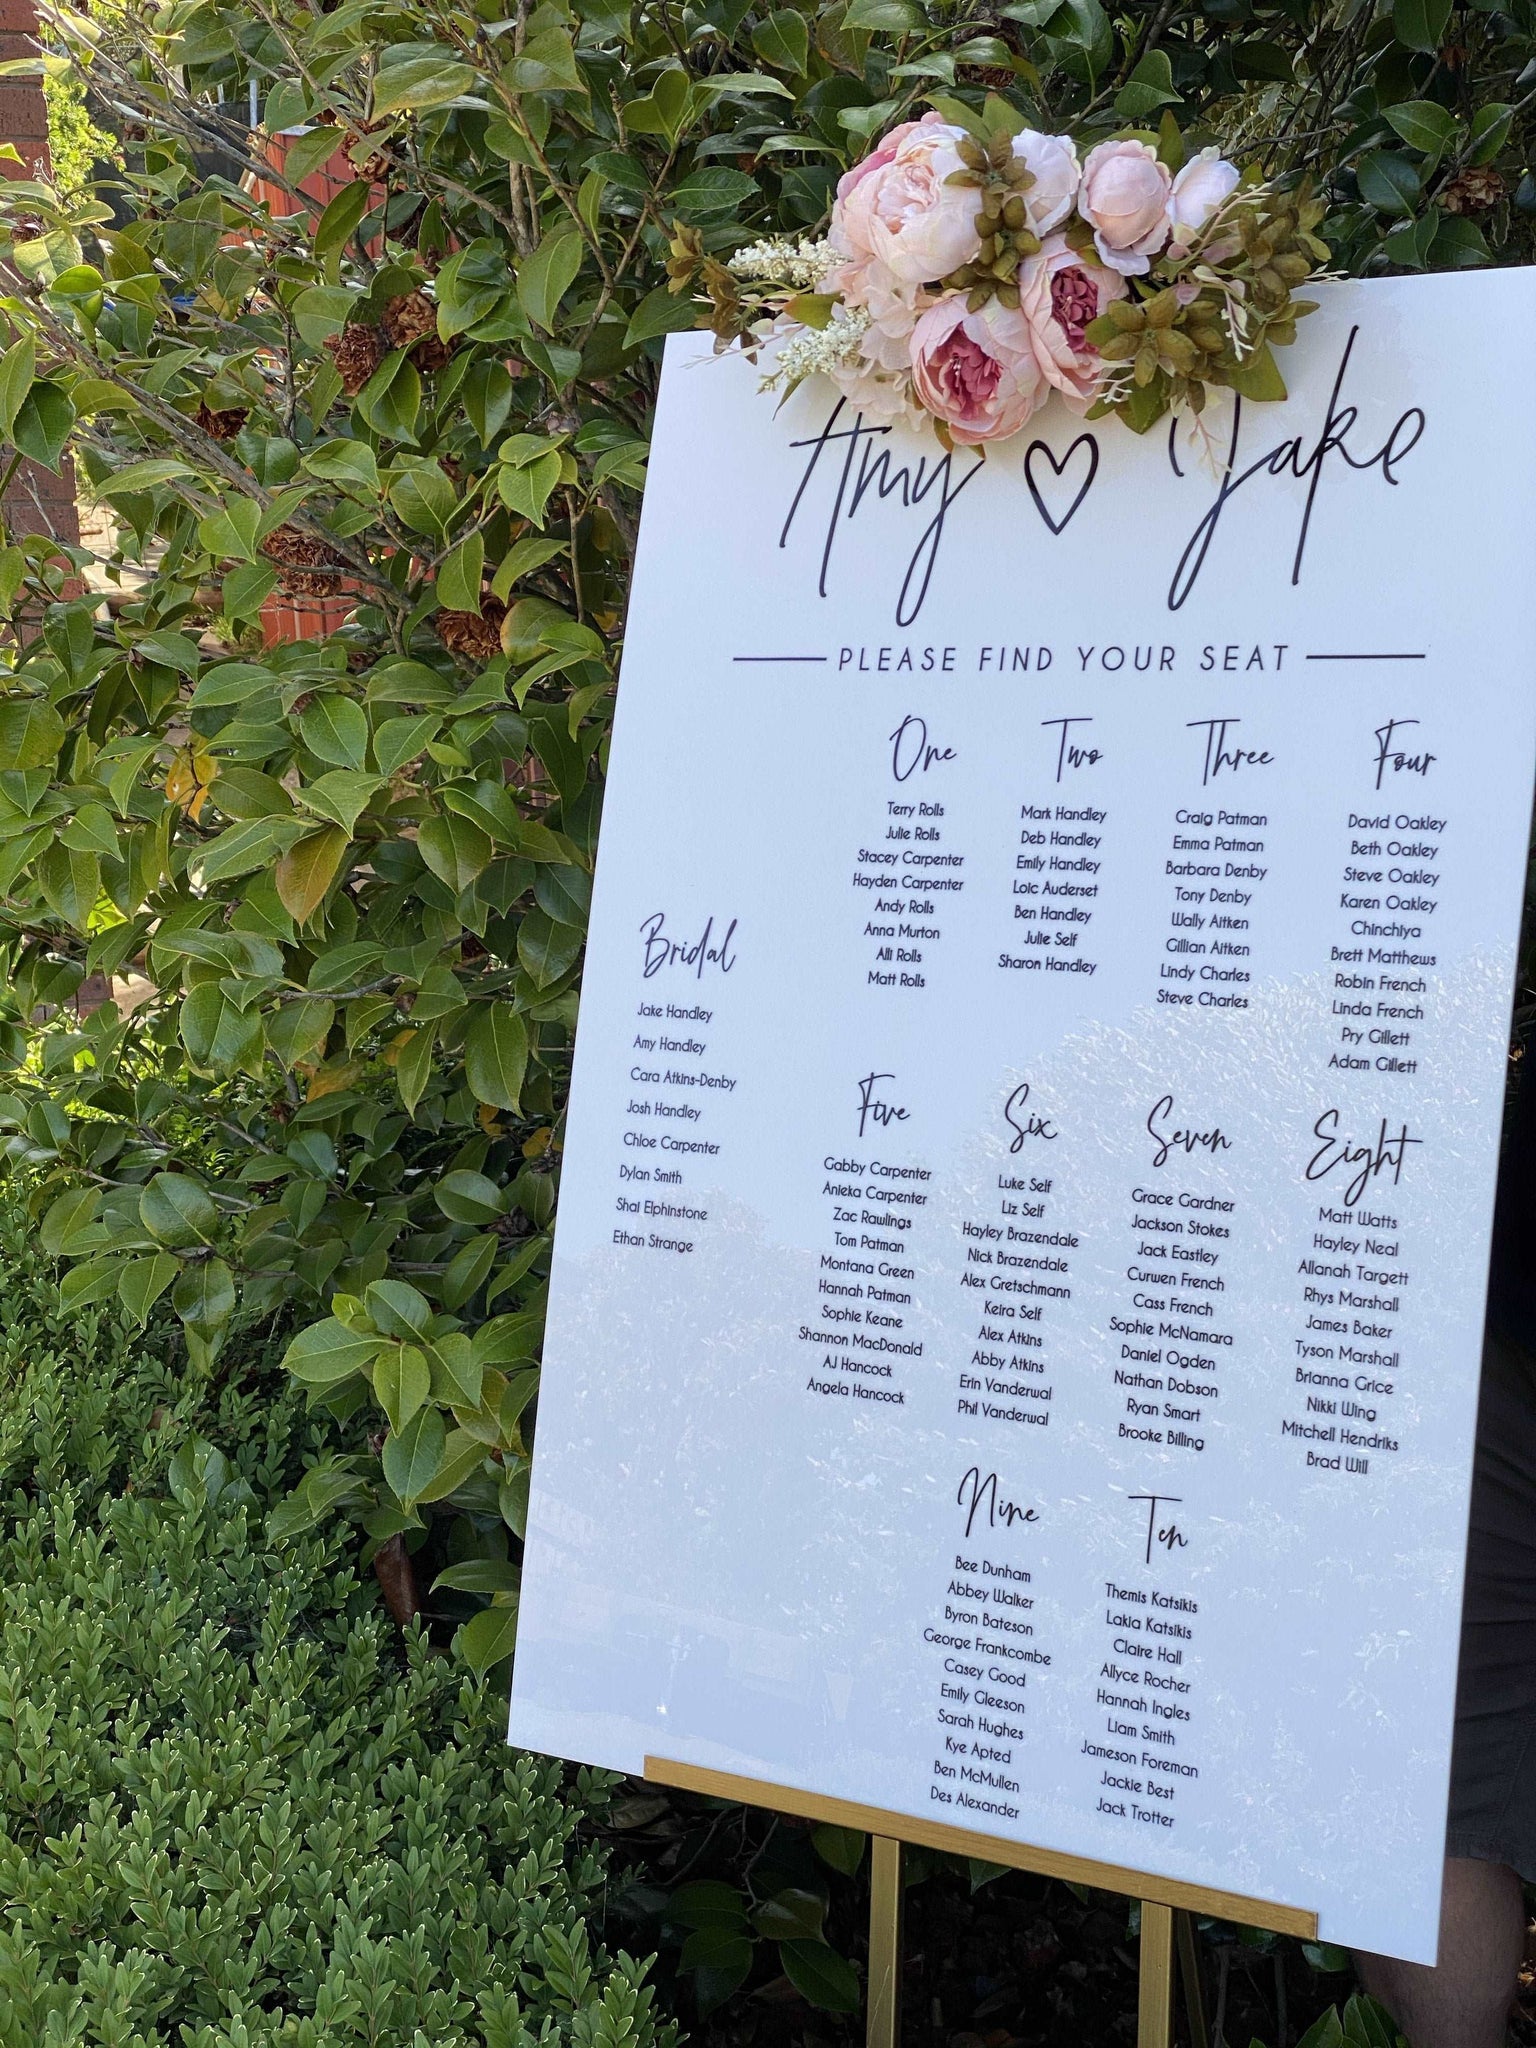 Amy ♡ Jake
PLEASE FIND YOUR SEAT
Bridal
Jake Handley
Amy Handley
Cara Atkins-Denby
Josh Handley
Chloe Carpenter
Dylan Smith
Shai Elphinstone
Ethan Strange
One
Terry Rolls
Julie Rolls
Stacey Carpenter
Hayden Carpenter
Andy Rolls
Anna Murton
Alli Rolls
Matt Rolls
Two
Mark Handley
Deb Handley
Emily Handley
Loic Auderset
Ben Handley
Julie Self
Sharon Handley
Three
Craig Patman
Emma Patman
Barbara Denby
Tony Denby
Wally Aitken
Gillian Aitken
Lindy Charles
Steve Charles
Four
David Oakley
Beth Oakley
Steve Oakley
Karen Oakley
Chinchiya
Brett Matthews
Robin French
Linda French
Pry Gillett
Adam Gillett
Five
Gabby Carpenter
Anieka Carpenter
Zac Rawlings
Tom Patman
Montana Green
Hannah Patman
Sophie Keane
Shannon MacDonald
AJ Hancock
Angela Hancock
Six
Luke Self
Liz Self
Hayley Brazendale
Nick Brazendale
Alex Gretschmann
Keira Self
Alex Atkins
Abby Atkins
Erin Vanderwal
Phil Vanderwal
Seven
Grace Gardner
Jackson Stokes
Jack Eastley
Curwen French
Cass French
Sophie McNamara
Daniel Ogden
Nathan Dobson
Ryan Smart
Brooke Billing
Eight
Matt Watts
Hayley Neal
Allanah Targett
Rhys Marshall
James Baker
Tyson Marshall
Brianna Grice
Nikki Wing
Mitchell Hendriks
Brad Will
Nine
Bee Dunham
Abbey Walker
Byron Bateson
George Frankcombe
Casey Good
Emily Gleeson
Sarah Hughes
Kye Apted
Ben McMullen
Des Alexander
Ten
Themis Katsikis
Lakia Katsikis
Claire Hall
Allyce Rocher
Hannah Ingles
Liam Smith
Jameson Foreman
Jackie Best
Jack Trotter